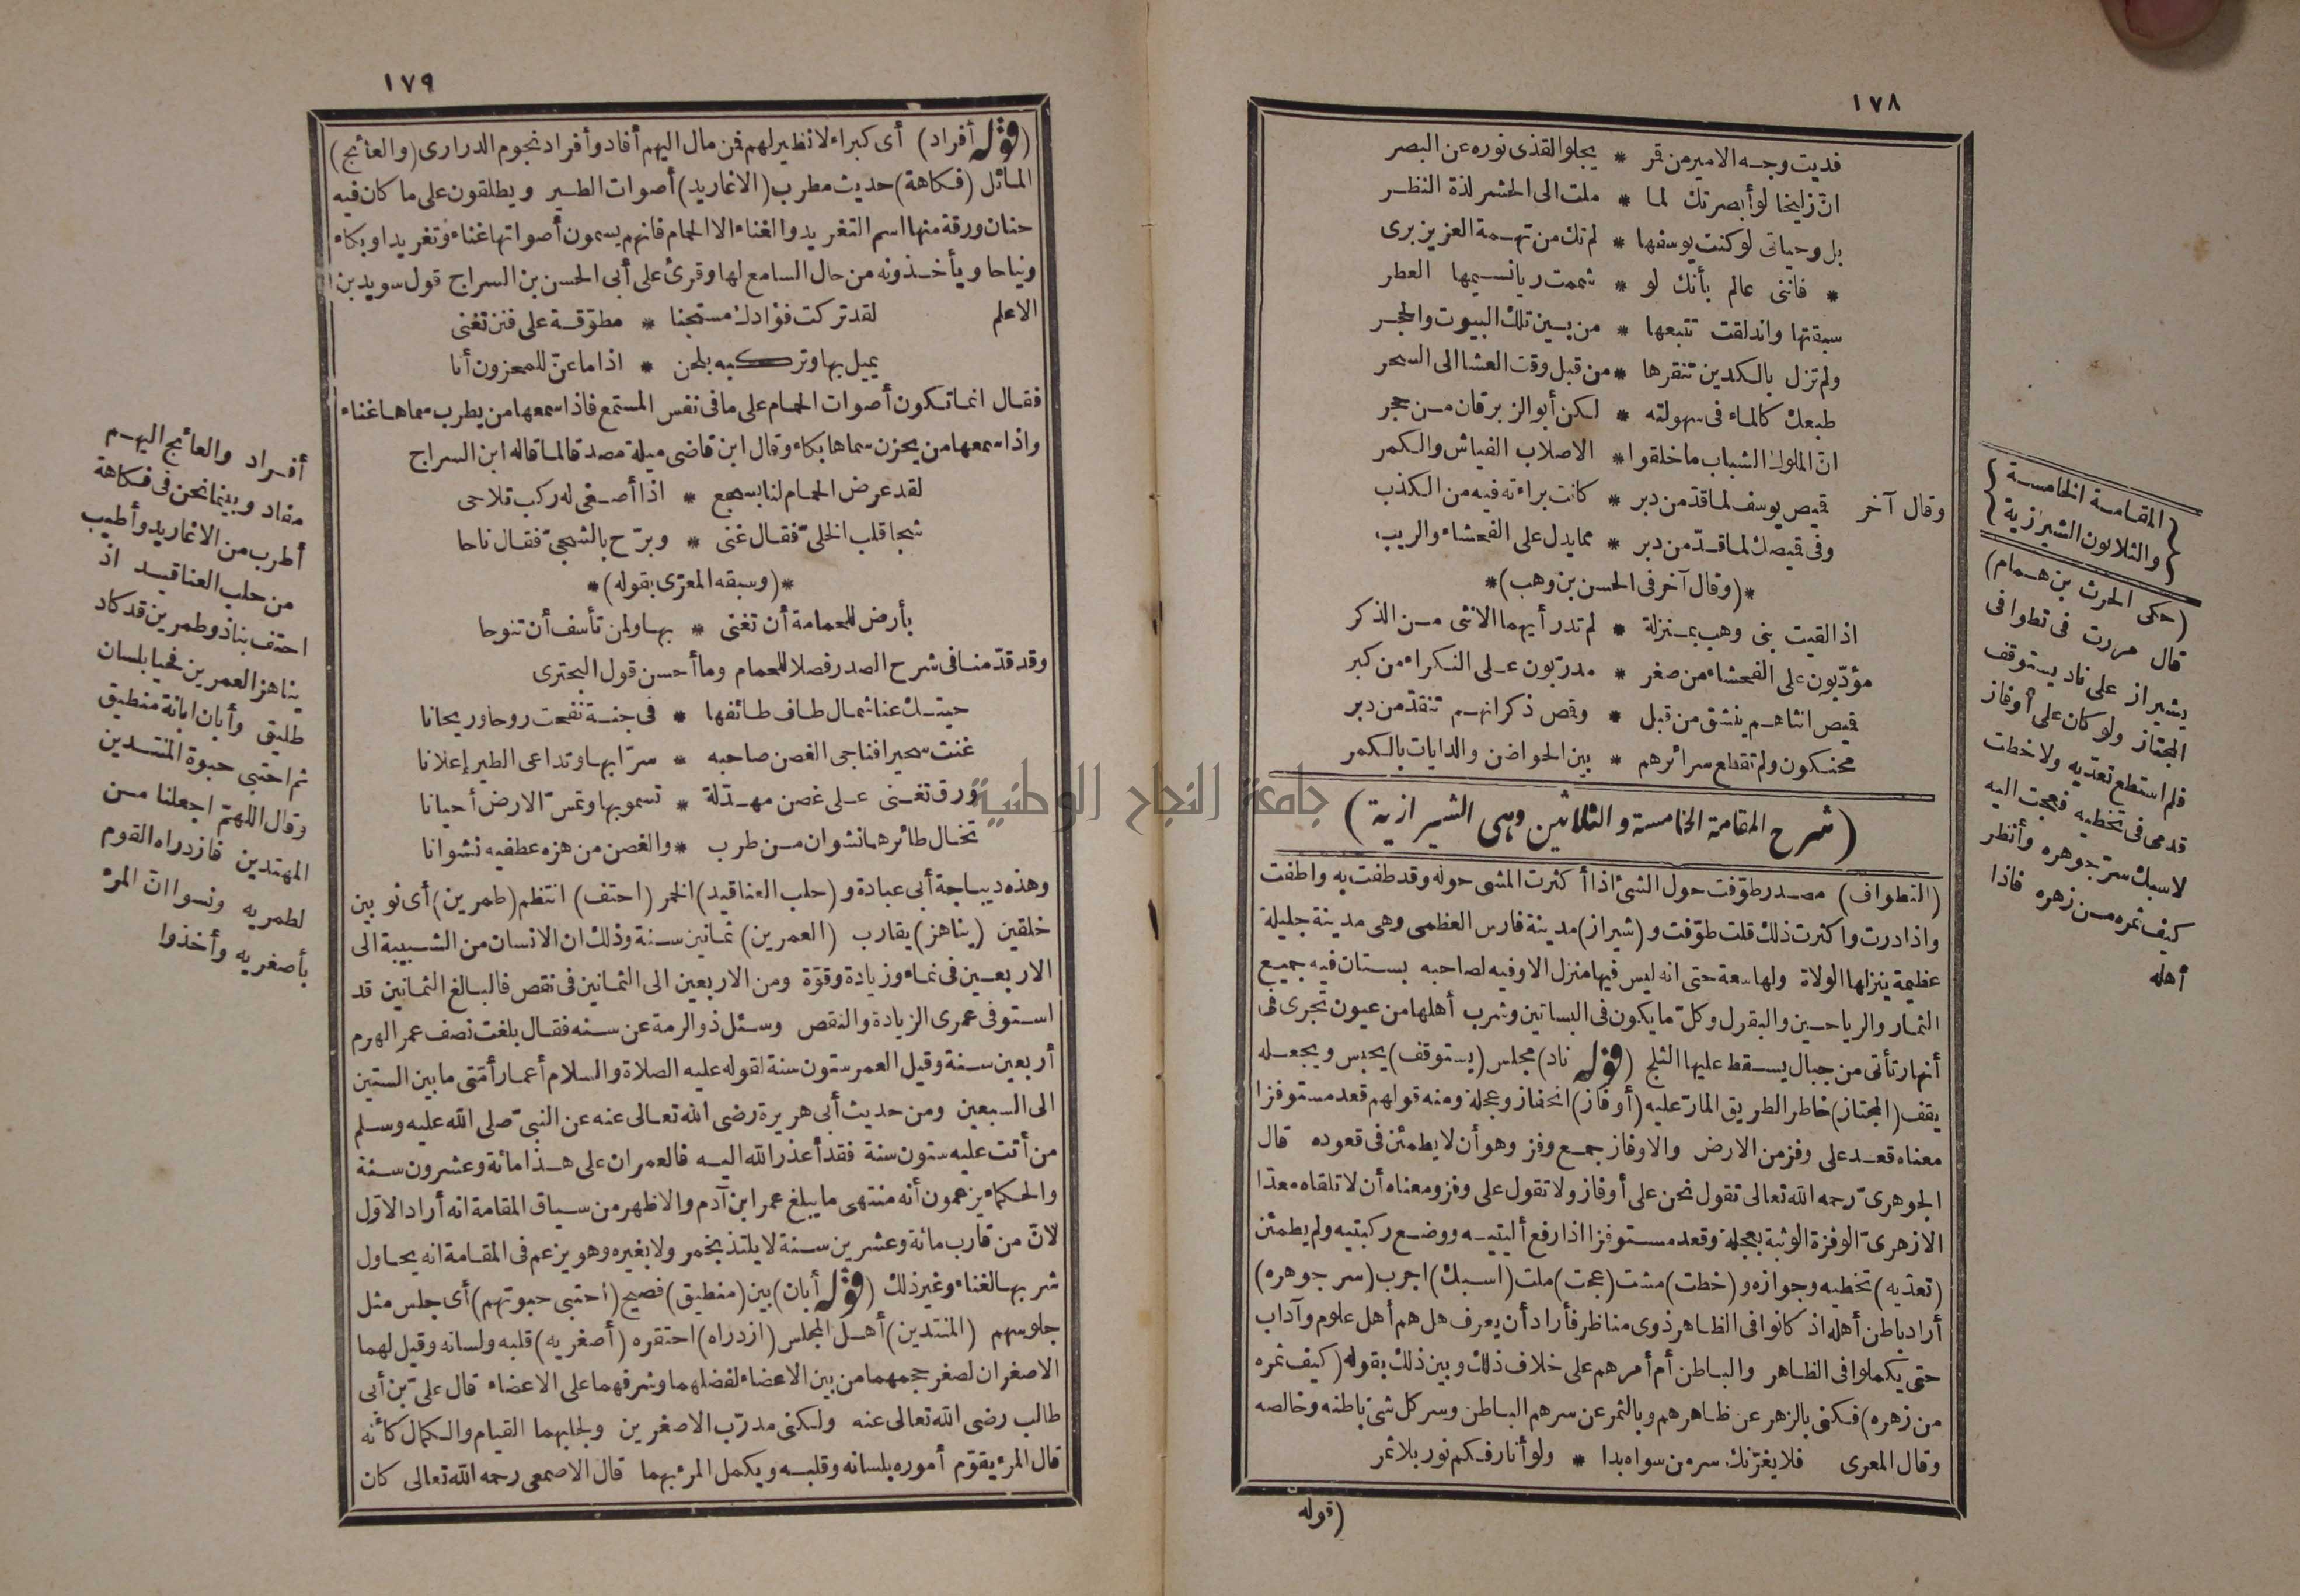 ١٧٨
فديت وجه الامير من قمر * يجلو القذى نوره عن البصر
انّ زليخا لو أبصرتك لما * ملت الى الحشر لذة النظر
بل وحياتى لو كنت يوسفها * لم تك من تهمة العزيز برى
* فاننى عالم بأنك لو * شممت ريا نسيمها العطر
سبقتها واندلقت تتبعها * من بين تلك البيوت والحجر
ولم تزل بالكدين تنقرها * من قبل وقت العشا الى السحر
طبعك كالماء فى سهولته * لكن أبو الزبرقان من حجر
انّ الملوك الشباب ما خلقوا * الاصلاب الفياش والكمر
وقال آخر قميص يوسف لما قدّ من دبر * كانت براءته فيه من الكذب
وفى قميصك لما قدّ من دبر * مما يدل على الفحشاء والريب
*(وقال آخر فى الحسن بن وهب)*
اذا لقيت بنى وهب بمنزلة * لم تدر أيهما الانثى من الذكر
مؤدّبون على الفحشاء من صغر * مدربون على النكراء من كبر
قميص انثاهم ينشق من قبل * وقمص ذكرانهم تنقدّ من دبر
محنكون ولم تقطع سرائرهم * بين الحواضن والدايات بالكمر
(شرح المقامة الخامسة والثلاثين وهى الشيرازية)
(التطواف) مصدر طوّفت حول الشئ اذا أكثرت المشى حوله وقد طفت به واطفت
واذا درت واكثرت ذلك قلت طوّفت و(شيراز) مدينة فارس العظمى وهى مدينة جليلة
عظيمة ينزلها الولاة ولها سعة حتى انه ليس فيها منزل الا وفيه لصاحبه بستان فيه جميع
الثمار والرياحين والبقول وكلّ ما يكون فى البساتين وشرب أهلها من عيون تجرى فى
أنهار تأتى من جبال يسقط عليها الثلج (قوله ناد) مجلس (يستوقف) يحبس ويجعله
يقف (المجتاز) خاطر الطريق المارّ عليه (أوفاز) انحفاز وعجلة ومنه قولهم قعد مستوفزا
معناه قعد على وفز من الارض والاوفاز جمع وفز وهو أن لا يطمئن فى قعوده قال
الجوهرىّ رحمه الله تعالى تقول نحن على أوفاز ولا تقول على وفز ومعناه أن لا تلقاه معدّا
الازهرىّ الوفزة الوثبة بعجلة وقعد مستوفزا اذا رفع أليتيه ووضع ركبتيه ولم يطمئن
(تعدّيه) تخطيه وجوازه و(خطت) مشت (عجت) ملت (اسبك) اجرب (سر جوهره)
أراد باطن أهله اذ كانوا فى الظاهر ذوى مناظر فأراد أن يعرف هل هم أهل علوم وآداب
حتى يكملوا فى الظاهر والباطن أم أمرهم على خلاف ذلك وبين ذلك بقوله (كيف ثمره
من زهره) فكنى بالزهر عن ظاهرهم وبالثمر عن سرهم الباطن وسر كل شئ باطنه وخالصه
وقال المعرى فلا يغرّنك سر من سواه بدا * ولو أنارفكم نور بلا ثمر
(قوله
{المقامة الخامسة
والثلاثون الشيرازية}
(حكى الحرث بن همام)
قال مررت فى تطوافى
بشيراز على ناد يستوقف
المجتاز ولو كان على أوفاز
فلم استطع تعدّيه ولا خطت
قدمى فى تخطيه فعجت اليه
لاسبك سرّ جوهره وأنظر
كيف ثمره من زهره فاذا
أهله
١٧٩
(قوله أفراد) أى كبراء لا نظير لهم فمن مال اليهم أفاد وأفراد نجوم الدرارى (والعائج)
المائل (فكاهة) حديث مطرب (الاغاريد) أصوات الطير ويطلقون على ما كان فيه
حنان ورقة منها اسم التغريد والغناء الا الحمام فانهم يسمون أصواتها غناء وتغريدا وبكاء
ونياحا ويأخذونه من حال السامع لها وقرئ على أبى الحسن بن السراج قول سويد بن
الاعلم لقد تركت فؤادك مستجنا * مطوّقة على فنن تغنى
يميل بها وتركبه بلحن * اذا ما عنّ للمحزون أنا
فقال انما تكون أصوات الحمام على ما فى نفس المستمع فاذا سمعها من يطرب سماها غناء
واذا سمعها من يحزن سماها بكاء وقال ابن قاضى ميلة مصدقا لما قاله ابن السراج
لقد عرض الحمام لنا بسجع * اذا أصغى له ركب تلاحى
شجا قلب الخلىّ فقال غنى * وبرّح بالشجىّ فقال ناحا
*(وسبقه المعرّى بقوله)*
بأرض للحمامة أن تغنى * بها ولمن تأسف أن تنوحا
وقد قدّمنا فى شرح الصدر فصلا للحمام وما أحسن قول البحترى
حيتك عنا شمال طاف طائفها * فى جنة نفحت روحا وريحانا
غنت سحيرا فناجى الغصن صاحبه * سرّا بها وتداعى الطير إعلانا
ورق تغنى على غصن مهدّلة * تسمو بها وتمسّ الارض أحيانا
تخال طائرها نشوان من طرب * والغصن من هزه عطفيه نشوانا
وهذه ديباجة أبى عبادة و(حلب العناقيد) الخمر (احتف) انتظم (طمرين) أى ثوبين
خلقين (يناهز) يقارب (العمرين) ثمانين سنة وذلك ان الانسان من الشبيبة الى
الاربعين فى نماء وزيادة وقوّة ومن الاربعين الى الثمانين فى نقص فالبالغ الثمانين قد
استوفى عمرى الزيادة والنقص وسئل ذو الرمة عن سنه فقال بلغت نصف عمر الهرم
أربعين سنة وقيل العمر ستون سنة لقوله عليه الصلاة والسلام أعمار أمّتى ما بين الستين
الى السبعين ومن حديث أبى هريرة رضى الله تعالى عنه عن النبىّ صلى الله عليه وسلم
من أتت عليه ستون سنة فقد أعذر الله اليه فالعمران على هذا مائة وعشرون سنة
والحكماء يزعمون أنه منتهى ما يبلغ عمر ابن آدم والاظهر من سياق المقامة انه أراد الاوّل
لانّ من قارب مائة وعشرين سنة لا يلتذ بخمر ولا بغيره وهو يزعم فى المقامة انه يحاول
شربها لغناء وغير ذلك (قوله أبان) بين (منطيق) فصيح (احتبى حبوتهم) أى جلس مثل
جلوسهم (المنتدين) أهل المجلس (ازدراه) احتقره (أصغريه) قلبه ولسانه وقيل لهما
الاصغران لصغر حجمهما من بين الاعضاء لفضلهما وشرفهما على الاعضاء قال علىّ بن أبى
طالب رضى الله تعالى عنه ولكنى مدرّب الاصغرين وبجلبهما القيام والكمال كأنه
قال المرء يقوّم أموره بلسانه وقلبه ويكمل المرء بهما قال الاصمعى رحمه الله تعالى كان
أفراد والعائج اليهم
مفاد وبينما نحن فى فكاهة
أطرب من الاغاريد وأطيب
من حلب العناقيد اذ
احتف بنا ذو طمرين قد كاد
يناهز العمرين فحيا بلسان
طليق وأبان ابانة منطيق
ثم احتبى حبوة المنتدين
وقال اللهمّ اجعلنا من
المهتدين فازدراه القوم
لطمريه ونسوا انّ المرء
بأصغريه وأخذوا
جامعة النجاح الوطنية